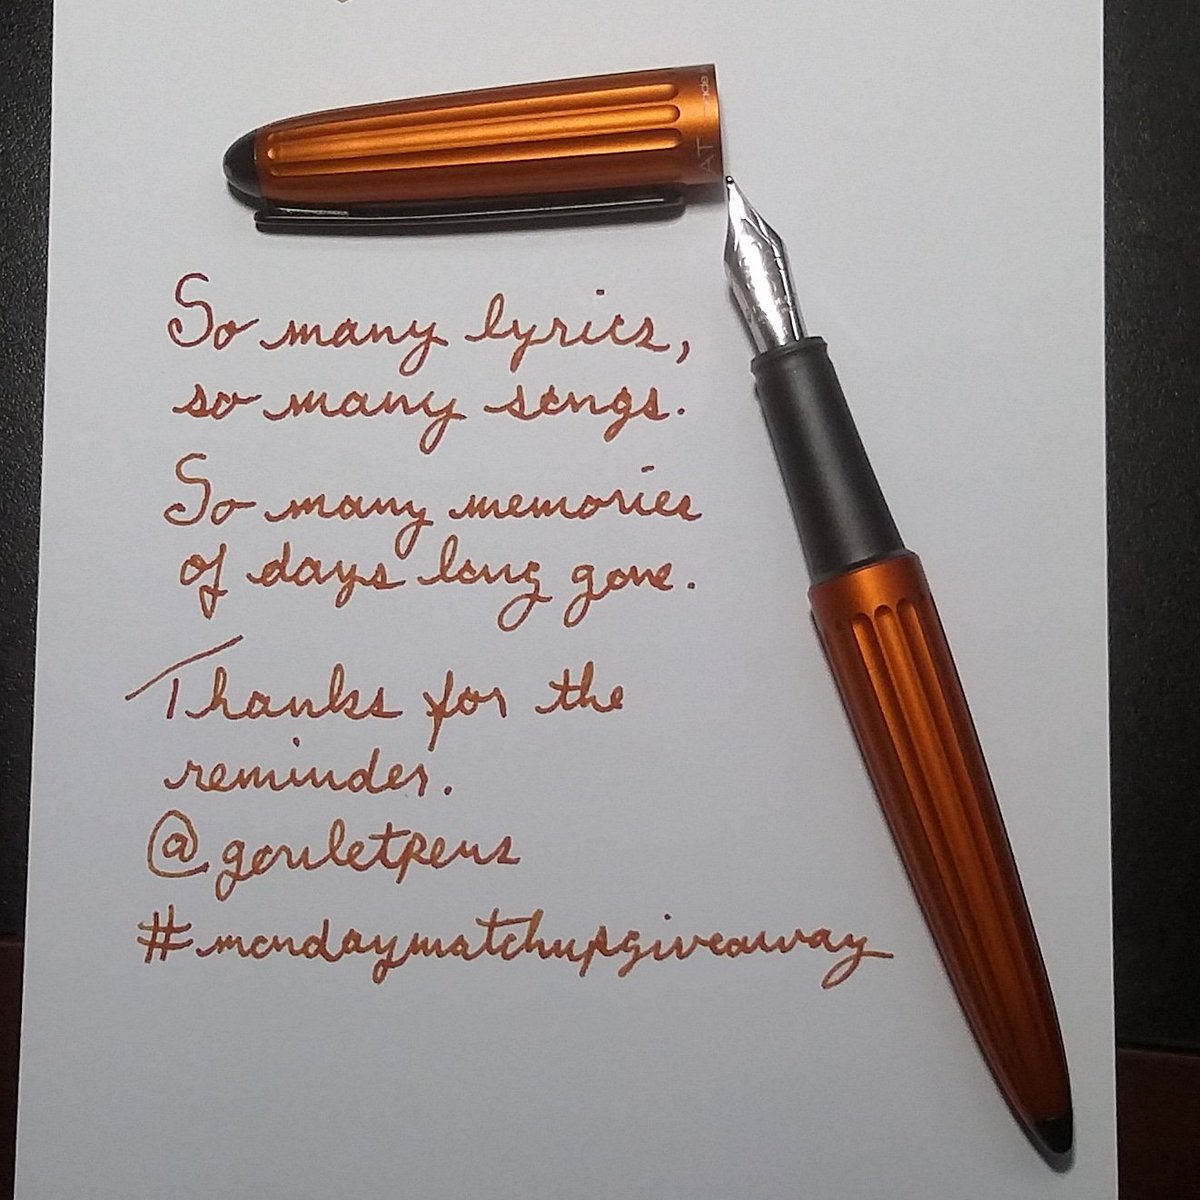 So many lyrics,
so many songs.
So many memories
of days long gone.
Thanks for the
reminder.
@gouletpens
#mondaymatchupgiveaway